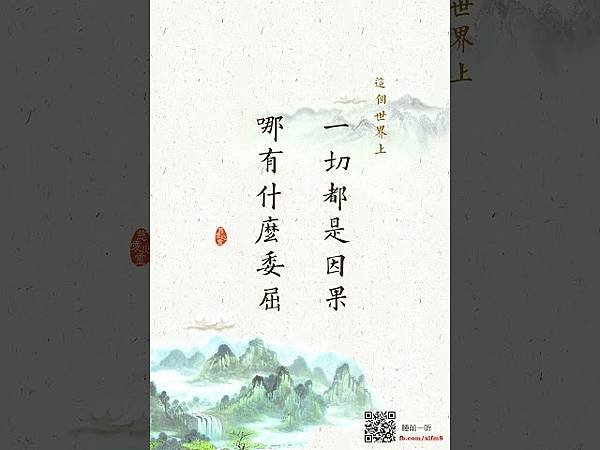 這個世界上
一切都是因果
哪有什麼委屈
睡前一听
fb.com/xifm8
世界上